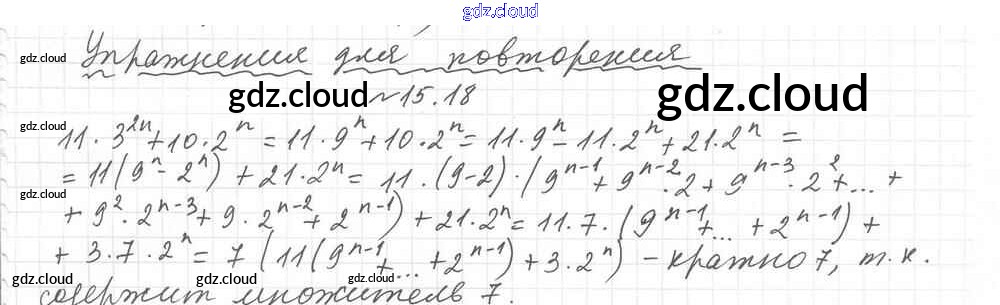 gdz.cloud
Упражнения для повторения
gdz.cloud
gdz.cloud № 15.18 gdz.cloud
gdz.cloud
11·3²ⁿ + 10·2ⁿ = 11·9ⁿ + 10·2ⁿ = 11·9ⁿ - 11·2ⁿ + 21·2ⁿ =
= 11(9ⁿ - 2ⁿ) + 21·2ⁿ = 11·(9-2)·(9ⁿ⁻¹ + 9ⁿ⁻²·2 + 9ⁿ⁻³·2² + ... +
gdz.cloud
+ 9²·2ⁿ⁻³ + 9·2ⁿ⁻² + 2ⁿ⁻¹) + 21·2ⁿ = 11·7·(9ⁿ⁻¹ + ... + 2ⁿ⁻¹) +
+ 3·7·2ⁿ = 7(11(9ⁿ⁻¹ + ... + 2ⁿ⁻¹) + 3·2ⁿ) - кратно 7, т.к.
gdz.cloud gdz.cloud gdz.cloud
содержит множитель 7.